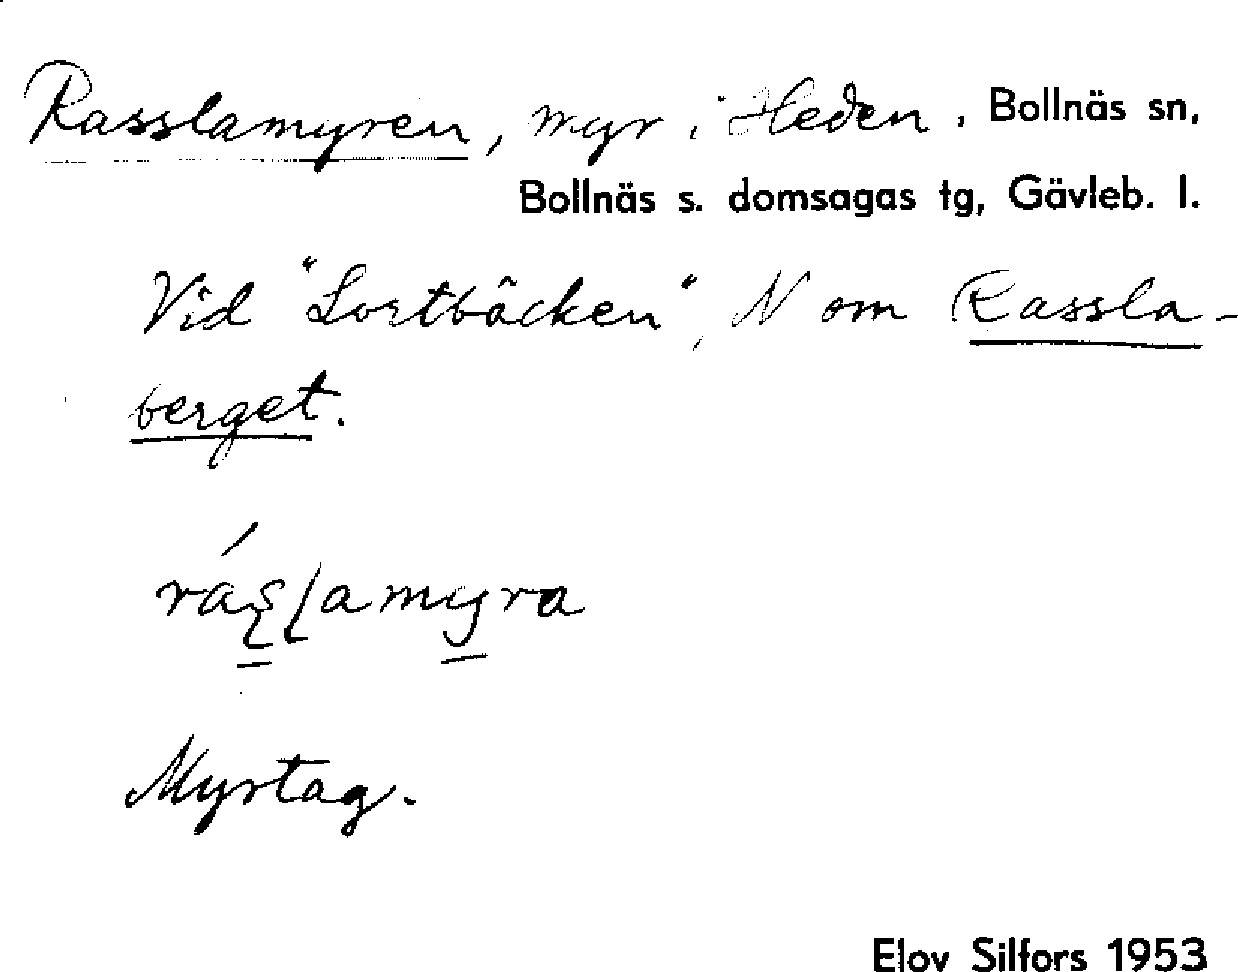 Rasslamyren, myr i Heden, Bollnäs sn,
Bollnäs s. domsagas tg, Gävleb. l.
Vid "Lortbäcken", N om Rassla-
berget.
Myrtag.
Elov Silfors 1953